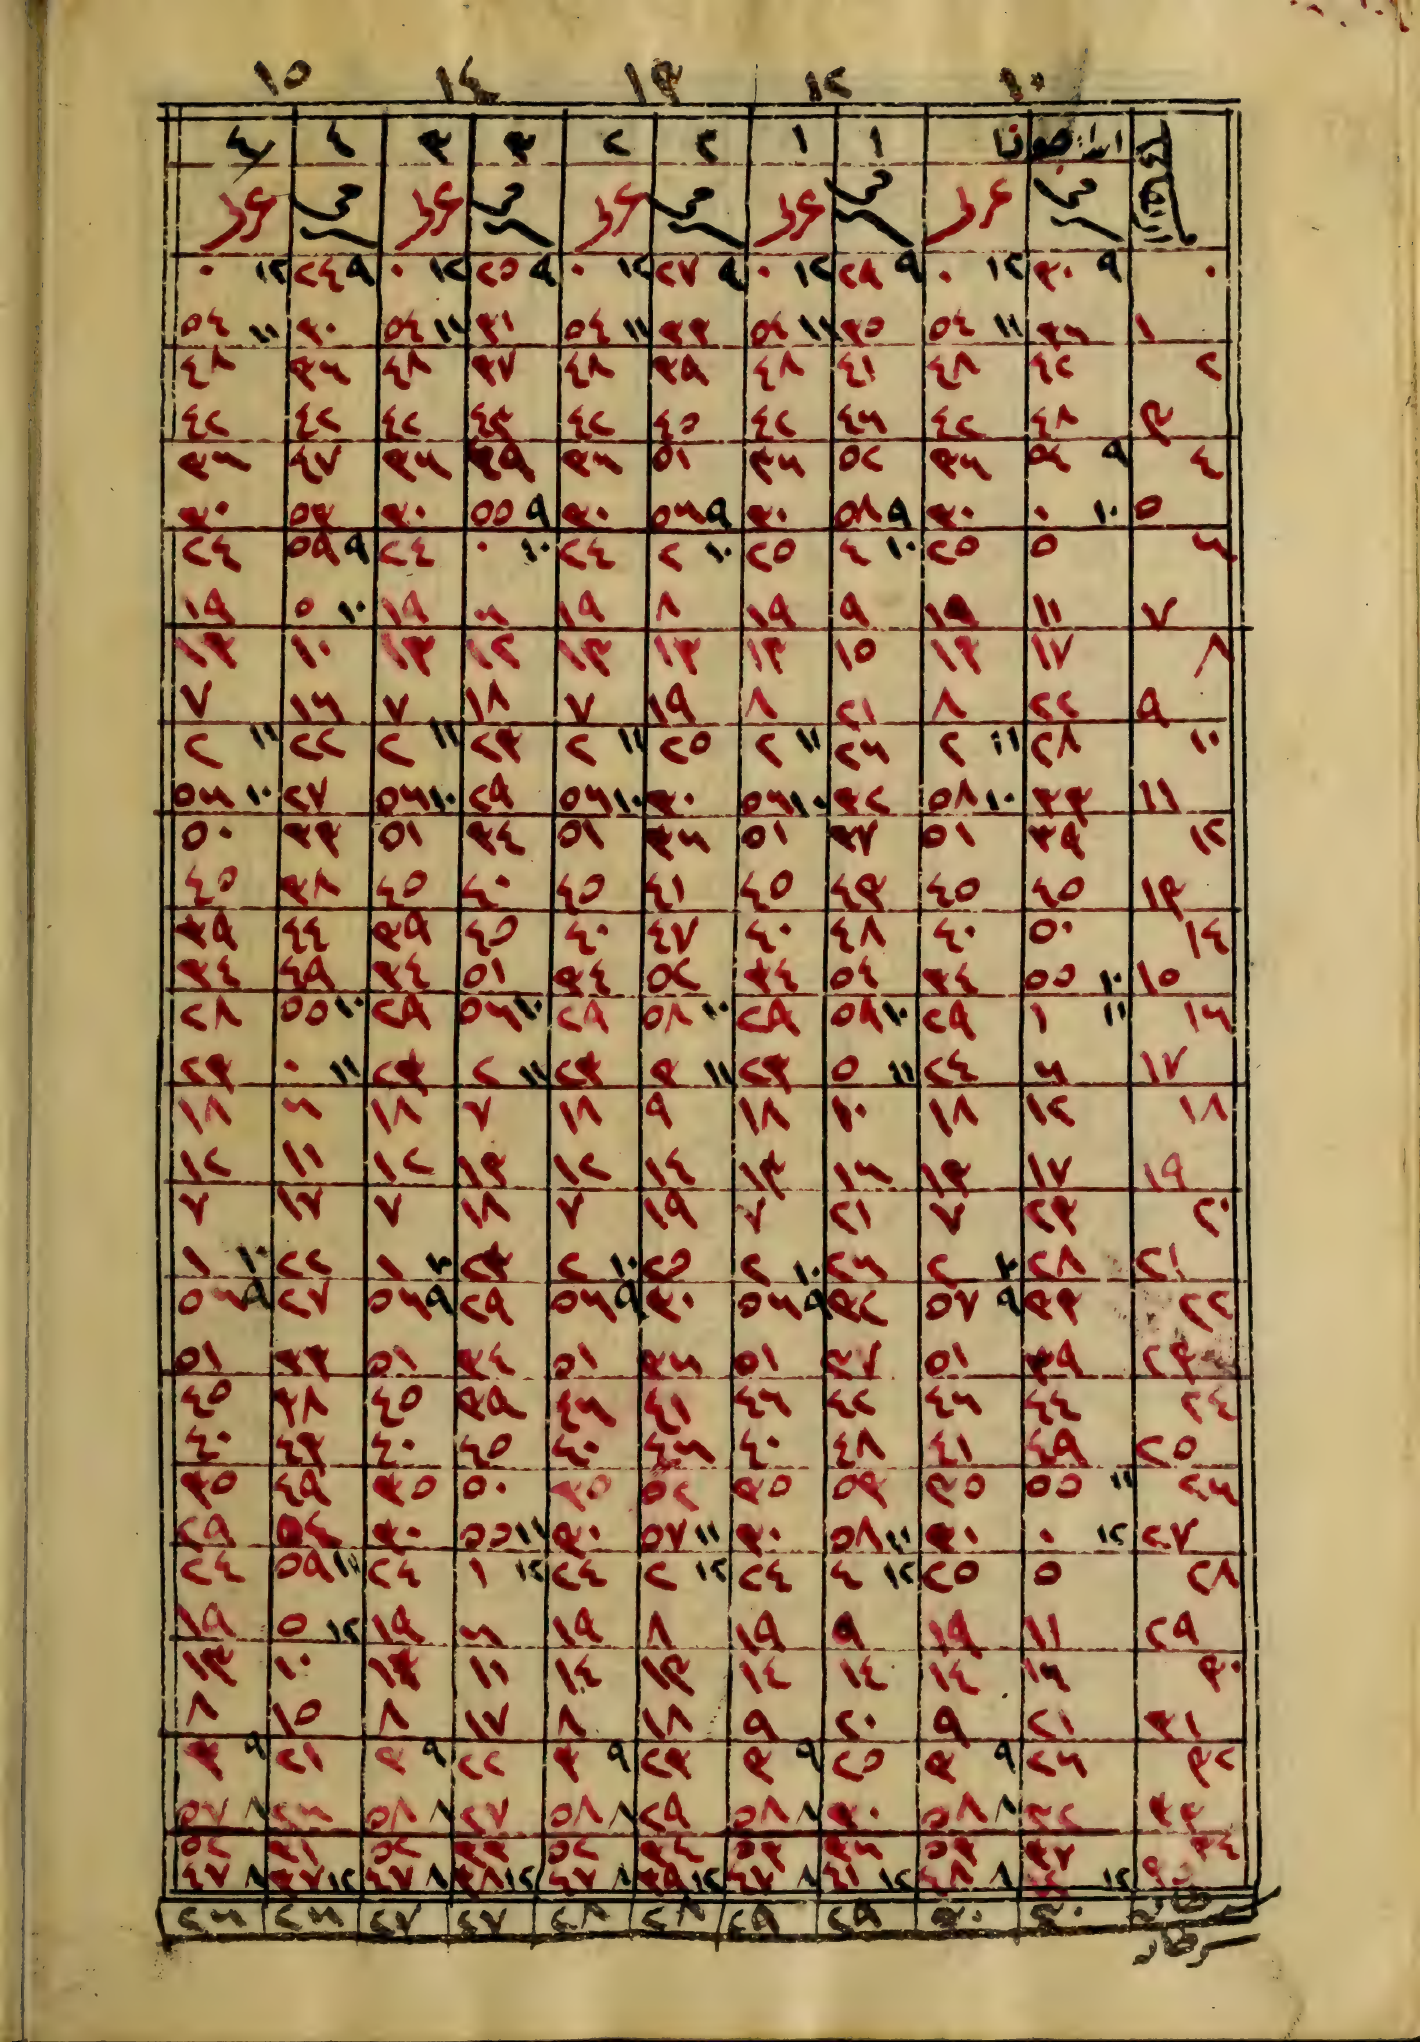 ١٠ ١٢ ١٣ ١٤ ١٥
١ ١ ٢ ٢ ٣ ٣ ٤ ٤
٠ ٩ ٣٠ ١٢ ٠ ٩ ٢٩ ١٢ ٠ ٩ ٢٧ ١٢ ٠ ٩ ٢٥ ١٢ ٠ ٩ ٢٤ ١٢ ٠
١ ٣٦ ١١ ٥٤ ٣٥ ١١ ٥٤ ٣٣ ١١ ٥٤ ٣١ ١١ ٥٤ ٣٠ ١١ ٥٤
٢ ٤٢ ٤٨ ٤١ ٤٨ ٣٩ ٤٨ ٣٧ ٤٨ ٣٦ ٤٨
٣ ٤٨ ٤٢ ٤٦ ٤٢ ٤٥ ٤٢ ٤٣ ٤٢ ٤٢ ٤٢
٤ ٩ ٥٤ ٣٦ ٥٢ ٣٦ ٥١ ٣٦ ٤٩ ٣٦ ٤٧ ٣٦
٥ ١٠ ٠ ٣٠ ٩ ٥٨ ٣٠ ٩ ٥٦ ٣٠ ٩ ٥٥ ٣٠ ٥٣ ٣٠
٦ ٥ ٢٥ ١٠ ٤ ٢٥ ١٠ ٢ ٢٤ ١٠ ٠ ٢٤ ٩ ٥٩ ٢٤
٧ ١١ ١٩ ٩ ١٩ ٨ ١٩ ٦ ١٩ ١٠ ٥ ١٩
٨ ١٧ ١٣ ١٥ ١٣ ١٣ ١٣ ١٢ ١٣ ١٠ ١٣
٩ ٢٢ ٨ ٢١ ٨ ١٩ ٧ ١٨ ٧ ١٦ ٧
١٠ ٢٨ ١١ ٢ ٢٦ ١١ ٢ ٢٥ ١١ ٢ ٢٣ ١١ ٢ ٢٢ ١١ ٢
١١ ٣٣ ١٠ ٥٨ ٣٢ ١٠ ٥٦ ٣٠ ١٠ ٥٦ ٢٩ ١٠ ٥٦ ٢٧ ١٠ ٥٦
١٢ ٣٩ ٥١ ٣٧ ٥١ ٣٦ ٥١ ٣٤ ٥١ ٣٣ ٥٠
١٣ ٤٥ ٤٥ ٤٣ ٤٥ ٤١ ٤٥ ٤٠ ٤٥ ٣٨ ٤٥
١٤ ٥٠ ٤٠ ٤٨ ٤٠ ٤٧ ٤٠ ٤٥ ٣٩ ٤٤ ٣٩
١٥ ١٠ ٥٥ ٣٤ ٥٤ ٣٤ ٥٢ ٣٤ ٥١ ٣٤ ٤٩ ٣٤
١٦ ١١ ١ ٢٩ ١٠ ٥٩ ٢٩ ١٠ ٥٨ ٢٩ ١٠ ٥٦ ٢٩ ١٠ ٥٥ ٢٨
١٧ ٦ ٢٤ ١١ ٥ ٢٣ ١١ ٣ ٢٣ ١١ ٢ ٢٣ ١١ ٠ ٢٣
١٨ ١٢ ١٨ ١٠ ١٨ ٩ ١٨ ٧ ١٨ ٦ ١٨
١٩ ١٧ ١٣ ١٦ ١٣ ١٤ ١٢ ١٣ ١٢ ١١ ١٢
٢٠ ٢٣ ٧ ٢١ ٧ ١٩ ٧ ١٨ ٧ ١٧ ٧
٢١ ٢٨ ١٠ ٢ ٢٦ ١٠ ٢ ٢٥ ١٠ ٢ ٢٣ ١٠ ١ ٢٢ ١٠ ١
٢٢ ٣٣ ٩ ٥٧ ٣٢ ٩ ٥٦ ٣٠ ٩ ٥٦ ٢٩ ٩ ٥٦ ٢٧ ٩ ٥٦
٢٣ ٣٩ ٥١ ٣٧ ٥١ ٣٦ ٥١ ٣٤ ٥١ ٣٣ ٥١
٢٤ ٤٤ ٤٦ ٤٢ ٤٦ ٤١ ٤٦ ٣٩ ٤٥ ٣٨ ٤٥
٢٥ ٤٩ ٤١ ٤٨ ٤٠ ٤٦ ٤٠ ٤٥ ٤٠ ٤٣ ٤٠
٢٦ ١١ ٥٥ ٣٥ ٥٣ ٣٥ ٥٢ ٣٥ ٥٠ ٣٥ ٤٩ ٣٥
٢٧ ١٢ ٠ ٣٠ ١١ ٥٨ ٣٠ ١١ ٥٧ ٣٠ ١١ ٥٥ ٣٠ ٥٤ ٢٩
٢٨ ٥ ٢٥ ١٢ ٤ ٢٤ ١٢ ٢ ٢٤ ١٢ ١ ٢٤ ١١ ٥٩ ٢٤
٢٩ ١١ ١٩ ٩ ١٩ ٨ ١٩ ٦ ١٩ ١٢ ٥ ١٩
٣٠ ١٦ ١٤ ١٤ ١٤ ١٣ ١٤ ١١ ١٣ ١٠ ١٣
٣١ ٢١ ٩ ٢٠ ٩ ١٨ ٨ ١٧ ٨ ١٥ ٨
٣٢ ٢٦ ٩ ٣ ٢٥ ٩ ٣ ٢٣ ٩ ٣ ٢٢ ٩ ٣ ٢١ ٩ ٣
٣٣ ٣٢ ٨ ٥٨ ٣٠ ٨ ٥٨ ٢٩ ٨ ٥٨ ٢٧ ٨ ٥٨ ٢٦ ٥٧
٣٤ ٣٧ ٥٣ ٣٦ ٥٣ ٣٤ ٥٢ ٣٣ ٥٢ ٣١ ٥٢
١٢ ٨ ٤٨ ١٢ ٤١ ٨ ٤٧ ١٢ ٣٩ ٨ ٤٧ ١٢ ٣٨ ٨ ٤٧ ١٢ ٣٧ ٤٧
٣٠ ٣٠ ٢٩ ٢٩ ٢٨ ٢٨ ٢٧ ٢٧ ٢٦ ٢٦
سرطان